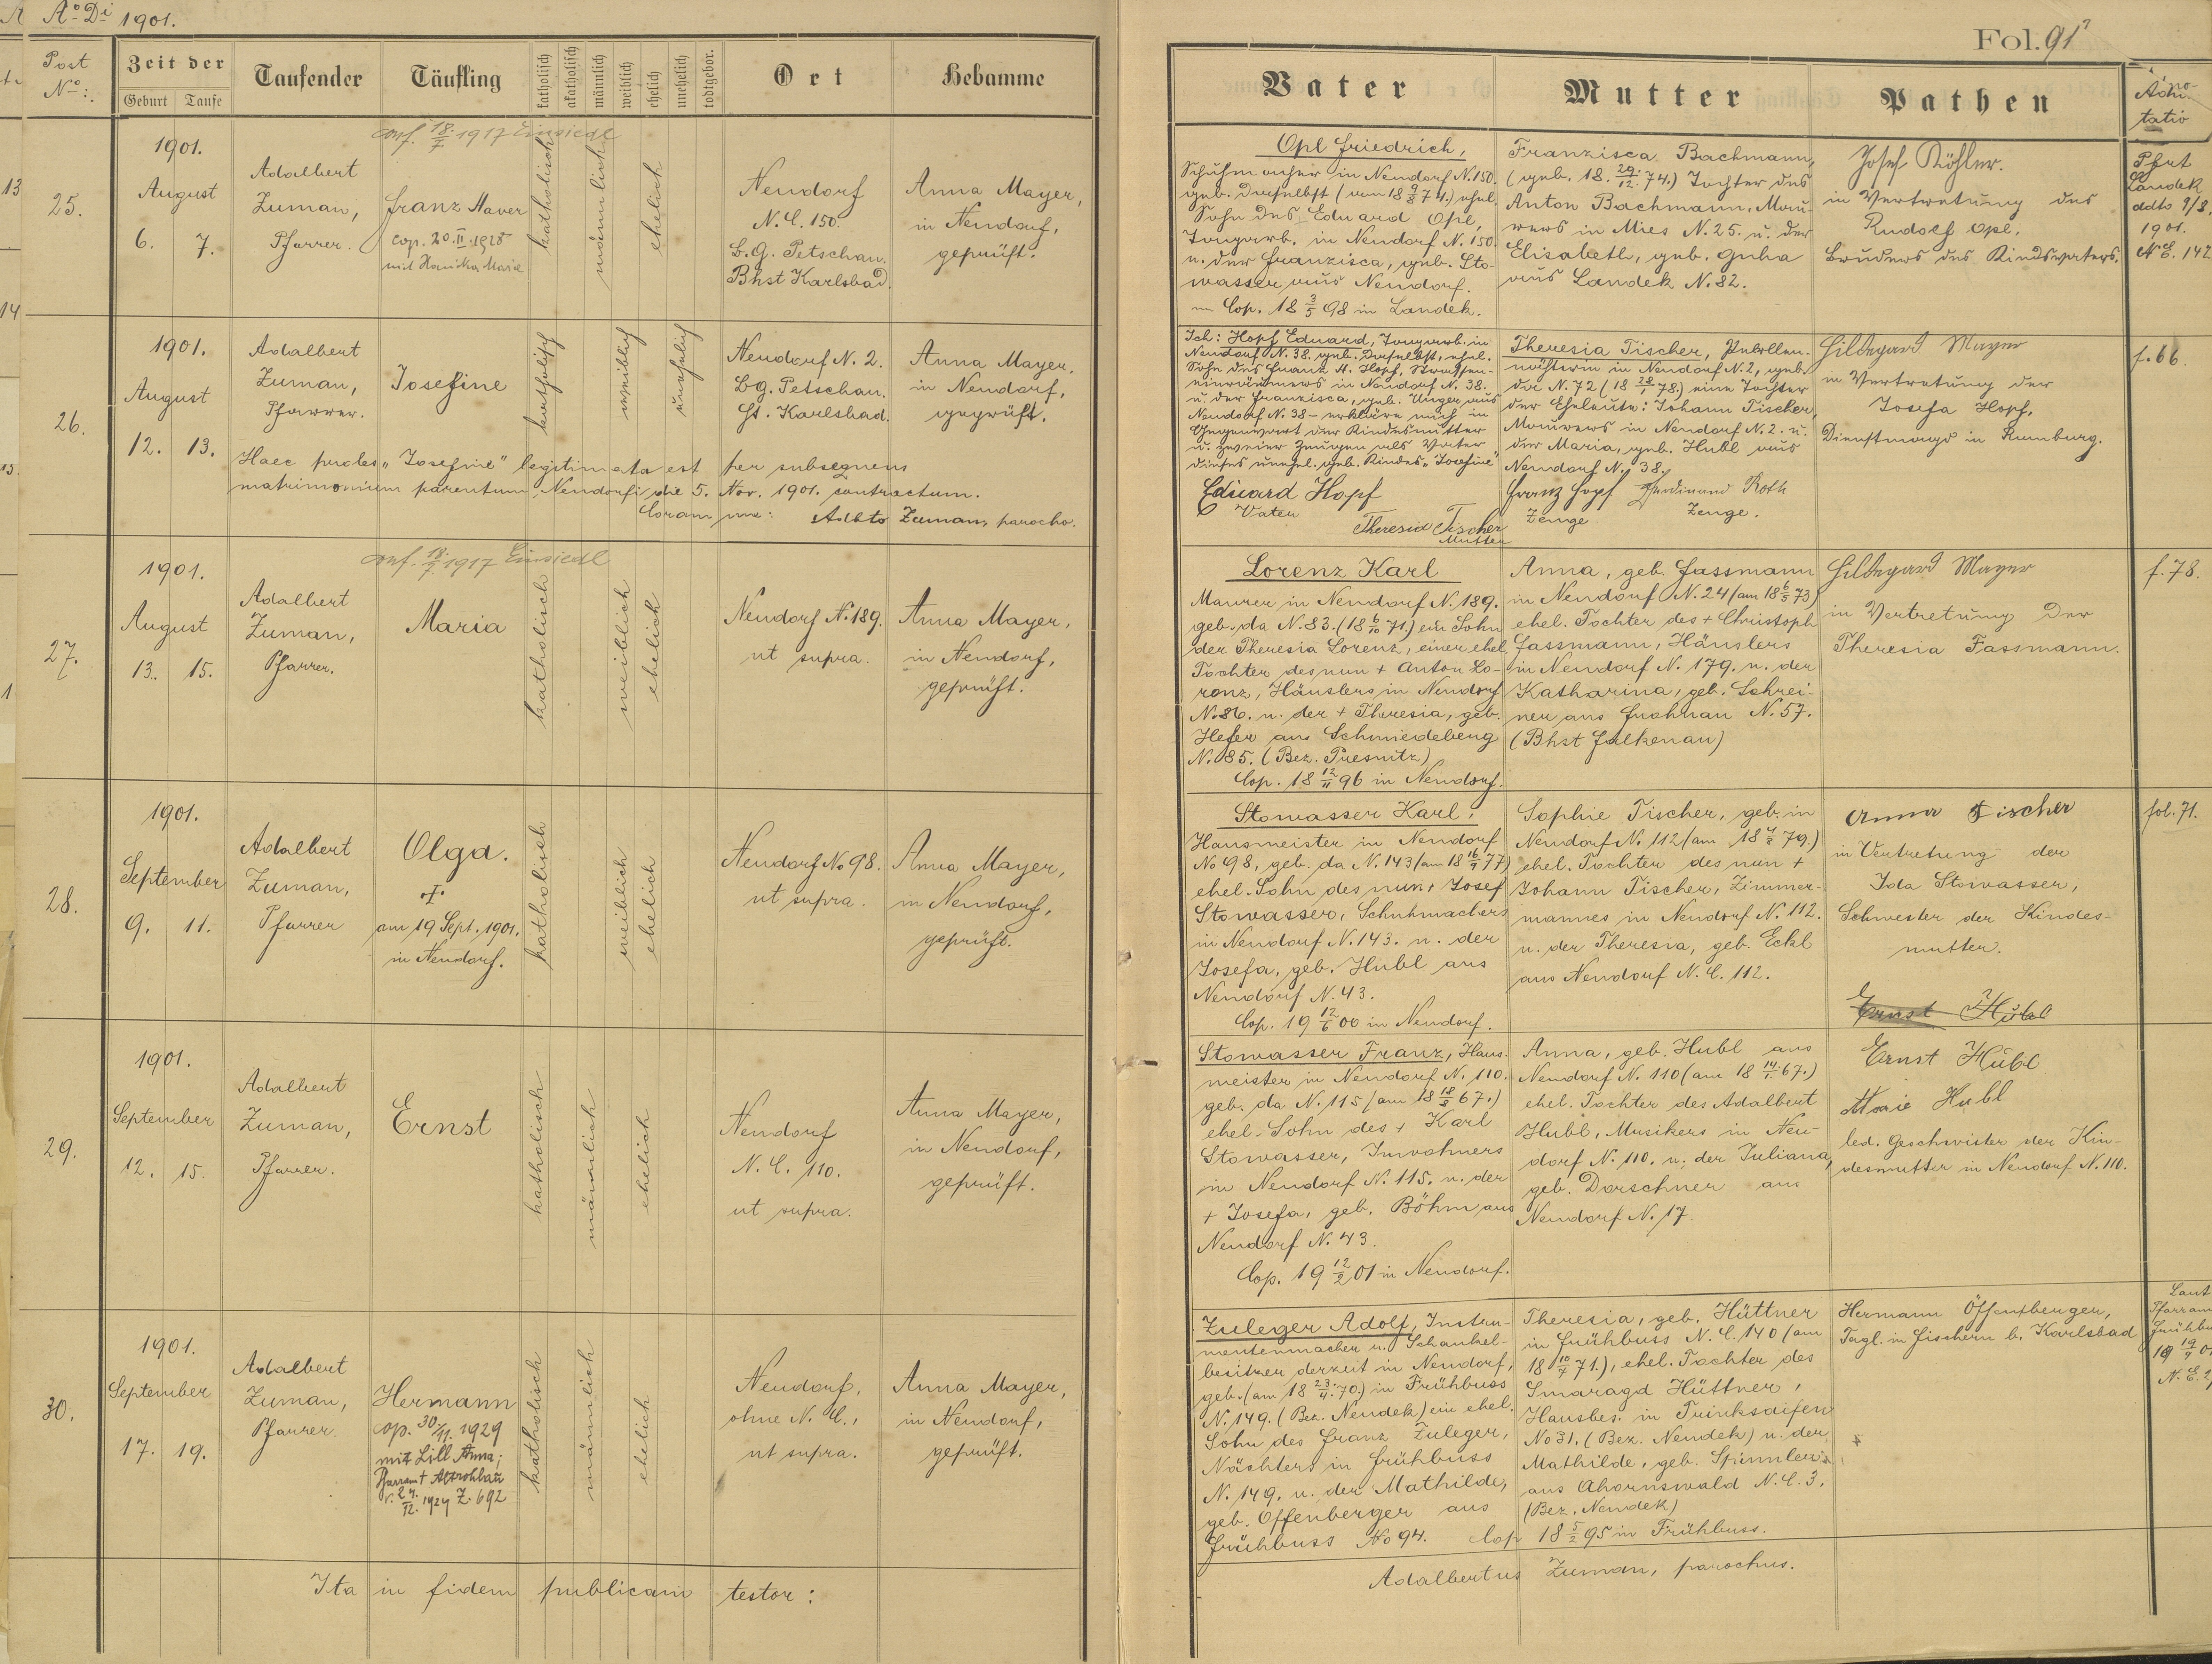 Aº Di 1901.
Fol. 91
Post Nº:
Zeit der
Geburt Taufe
Taufender
Täufling
katholisch
akatholisch
männlich
weiblich
ehelich
unehelich
todtgebor.
Ort
Hebamme
Vater
Mutter
Pathen
Adno-
tatio
25.
1901.
August
6. 7.
Adalbert
Zuman,
Pfarrer.
conf. 18/7 1917 Einsiedl
Franz Xaver
cop. 20.II.1928
mit Maria
katholisch
männlich
ehelich
Neudorf
N.C. 150.
B.G. Petschau.
Bhst Karlsbad.
Anna Mayer,
in Neudorf,
geprüft.
Opl Friedrich,
Schuhmacher in Neudorf N. 150.
geb. daselbst (am 18 9/8 74.) ehel.
Sohn des Eduard Opl,
Tongarb. in Neudorf N. 150.
u. der Franzisca, geb. Sto-
wasser aus Neudorf.
Cop. 18 3/5 98 in Landek.
Franzisca Bachmann,
(geb. 18. 29/12. 74.) Tochter des
Anton Bachmann, Mau-
rers in Mies N. 25. u. der
Elisabeth, geb. Guba
aus Landek N. 82.
Josef Köhler.
in Vertretung des
Rudolf Opl,
Bruders des Kindsvaters.
Pfrt
Landek
ddto 9/8.
1901.
N.E. 142
26.
1901.
August
12. 13.
Adalbert
Zuman,
Pfarrer.
Josefine
katholisch
weiblich
unehelich
Neudorf N. 2.
B.g. Petschau.
Gt. Karlsbad.
Anna Mayer,
in Neudorf,
geprüft.
Haec proles „Josefine" legitimata est per subsequens
matrimonium parentum Neudorfi die 5. Nov. 1901. contractum.
Coram me: Adbto Zuman, parocho.
Ich: Hopf Eduard, Tongarb. in
Neudorf N. 38. geb. daselbst, ehel.
Sohn des Franz A. Hopf, Strassen-
einräumers in Neudorf N. 38.
u. der Franzisca, geb. Unger aus
Neudorf N. 38 - erkläre mich in
Gegenwart der Kindesmutter
u. zweier Zeugen als Vater
dieses unehel. geb. Kindes „Josefine"
Eduard Hopf
Vater
Theresia Tischer
Mutter
Theresia Tischer, Perllen-
nähterin in Neudorf N. 2, geb.
da N. 72 (18 28/1 78.) eine Tochter
der Eheleute: Johann Tischer,
Maurers in Neudorf N. 2. u.
der Maria, geb. Hubl aus
Neudorf N. 38.
Franz Hopf Ferdinand Roth
Zeuge Zeuge.
Hildegard Mayer
in Vertretung der
Josefa Hopf,
Dienstmagd in Rumburg.
f. 66.
27.
1901.
August
13. 15.
Adalbert
Zuman,
Pfarrer.
conf. 18/7. 1917 Einsiedl
Maria
katholisch
weiblich
ehelich
Neudorf N. 189.
ut supra.
Anna Mayer,
in Neudorf,
geprüft.
Lorenz Karl
Maurer in Neudorf N. 189.
geb. da N. 83. (18 6/10 71.) ein Sohn
der Theresia Lorenz, einer ehel.
Tochter des nun + Anton Lo-
renz, Häuslers in Neudorf
N. 86. u. der + Theresia, geb.
Hefer aus Schmiedeberg
N. 85. (Bez. Presnitz)
Cop. 18 12/11 96 in Neudorf.
Anna, geb. Fassmann
in Neudorf N. 24 (am 18 6/5 73)
ehel. Tochter des + Christoph
Fassmann, Häuslers
in Neudorf N. 179. u. der
Katharina, geb. Schrei-
ner aus Frohnau N. 57.
(Bhst Falkenau)
Hildegard Mayer
in Vertretung der
Theresia Fassmann.
f. 78.
28.
1901.
September
9. 11.
Adalbert
Zuman,
Pfarrer
Olga.
+
am 19 Sept. 1901.
in Neudorf.
katholisch
weiblich
ehelich
Neudorf No 98.
ut supra.
Anna Mayer,
in Neudorf,
geprüft.
Stowasser Karl,
Hausmeister in Neudorf
No 98, geb. da N. 143 (am 18 16/9 77)
ehel. Sohn des nun + Josef
Stowasser, Schuhmachers
in Neudorf N. 143. u. der
Josefa, geb. Hubl aus
Neudorf N. 43.
Cop. 19 12/6 00 in Neudorf.
Sophie Tischer, geb. in
Neudorf N. 112 (am 18 4/2 79.)
ehel. Tochter des nun +
Johann Tischer, Zimmer-
mannes in Neudorf N. 112.
u. der Theresia, geb. Eckl
aus Neudorf N.C. 112.
Anna Tischer
in Vertretung der
Ida Stowasser,
Schwester der Kindes-
mutter.
Ernst Hübl
fol. 71.
29.
1901.
September
12. 15.
Adalbert
Zuman,
Pfarrer.
Ernst
katholisch
männlich
ehelich
Neudorf
N.C. 110.
ut supra.
Anna Mayer,
in Neudorf,
geprüft.
Stowasser Franz, Haus-
meister in Neudorf N. 110.
geb. da N. 115 (am 18 18/8 67.)
ehel. Sohn des + Karl
Stowasser, Inwohners
in Neudorf N. 115. u. der
+ Josefa, geb. Böhm aus
Neudorf N. 43.
Cop. 19 12/2 01 in Neudorf.
Anna, geb. Hubl aus
Neudorf N. 110 (am 18 14/1. 67.)
ehel. Tochter des Adalbert
Hubl, Musikers in Neu-
dorf N. 110. u. der Juliana,
geb. Dorschner aus
Neudorf N. 17.
Ernst Hübl
Marie Hubl
led. Geschwister der Kin-
desmutter in Neudorf N. 110.
30.
1901.
September
17. 19.
Adalbert
Zuman,
Pfarrer.
Hermann
cop. 30/11. 1929
mit Lill Anna;
Pfarramt Altrohlau
v. 24./12. 1929 Z. 692
katholisch
männlich
ehelich
Neudorf,
ohne N.C.,
ut supra.
Anna Mayer,
in Neudorf,
geprüft.
Zuleger Adolf, Instru-
mentenmacher u. Schaukel-
besitzer derzeit in Neudorf,
geb. (am 18 23/4. 70.) in Frühbuss
N. 149. (Bez. Neudek) ein ehel.
Sohn des Franz Zuleger,
Nächters in Frühbuss
N. 149. u. der Mathilde,
geb. Offenberger aus
Frühbuss No 94. Cop 18 5/2 95 in Frühbuss.
Theresia, geb. Hüttner
in Frühbuss N.C. 140 (am
18 10/4 71.), ehel. Tochter des
Smaragd Hüttner,
Hausbes. in Trinksaifen
No 31. (Bez. Neudek) u. der
Mathilde, geb. Spinnler
aus Ahornswald N.C. 3.
(Bez. Neudek)
Hermann Öffenberger,
Tagl. in Fischern b. Karlsbad
Laut
Pfarram
Frühbu
19 19/9 01
N.E.
Ita in fidem publicam testor:
Adalbertus Zuman, parochus.